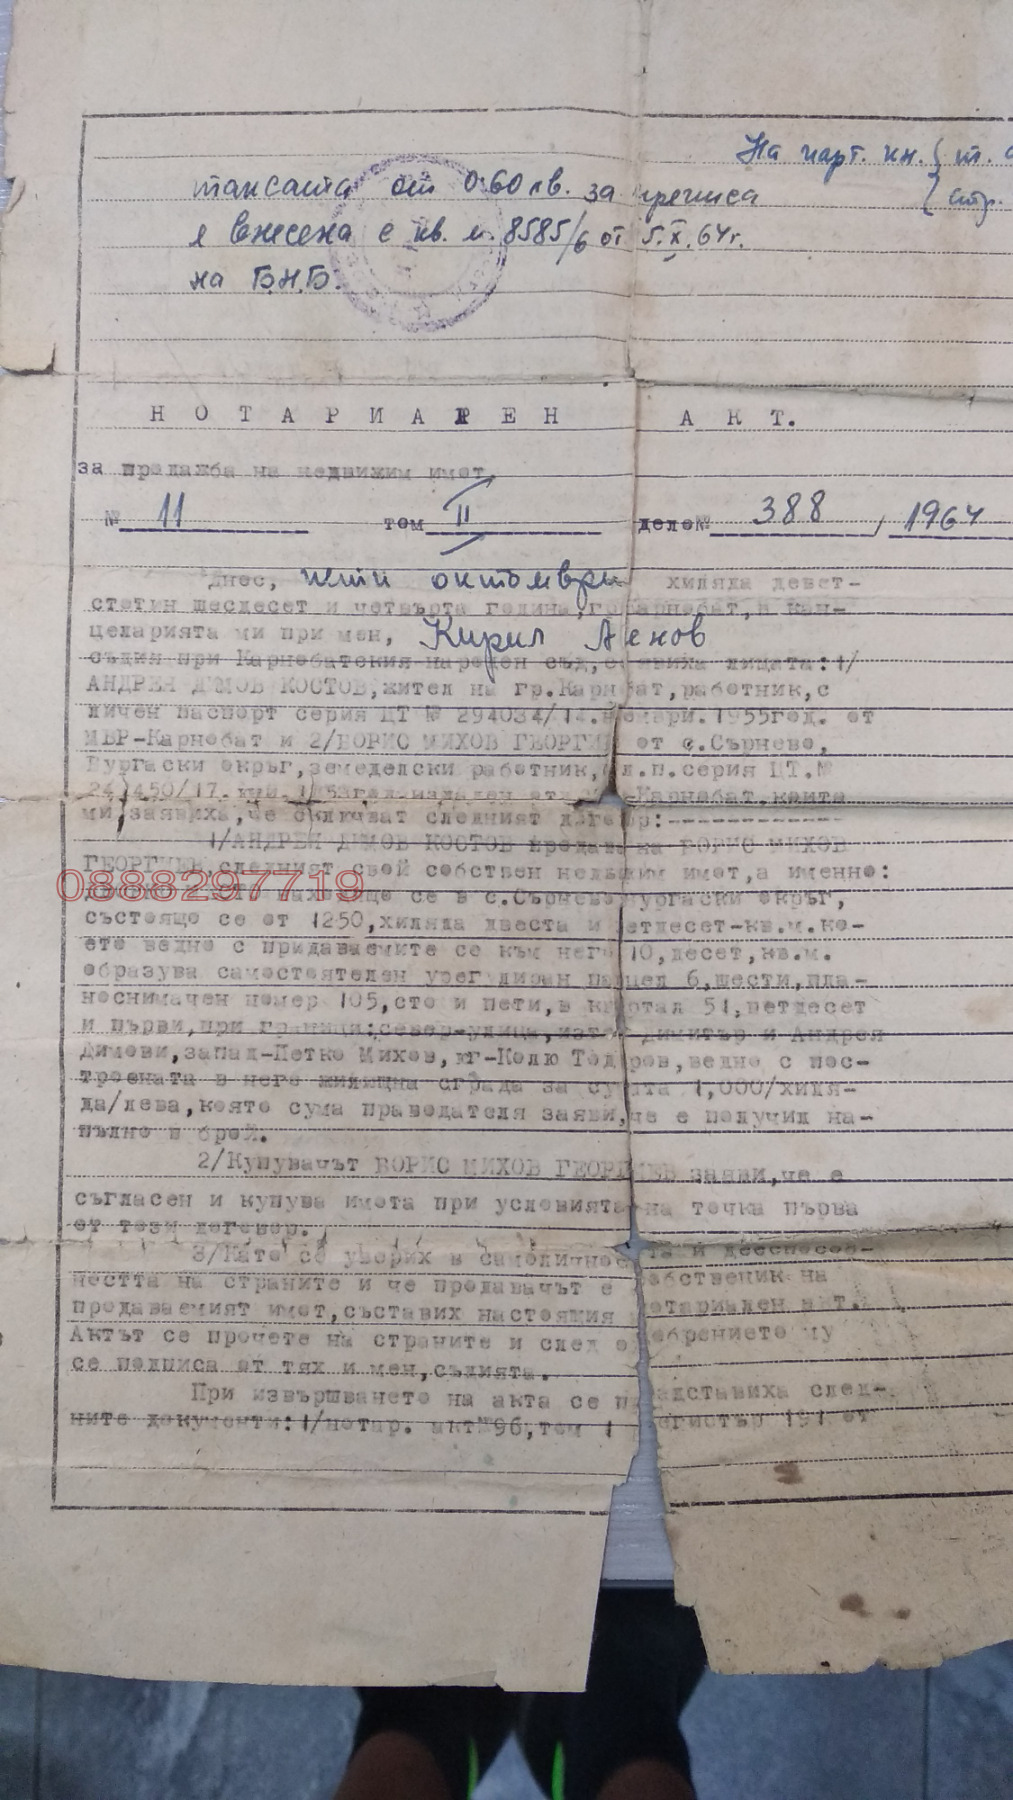 На парт. кн. { т.
таксата от 0.60 лв. за преписа { стр.
е внесена с кв. №. 8585/6 от 5.X.64г.
на Б.Н.Б.
НОТАРИАЛЕН АКТ.
за продажба на недвижим имот,
№ 11 том II дело№ 388 / 1964
Днес, пети октомври хиляда девет-
стотин шесдесет и четвърта година, гр.Карнобат, в кан-
целарията ми при мен, Кирил
съдия при Карнобатския народен съд, се явиха лицата: 1/
АНДРЕЯ ДИМОВ КОСТОВ, жител на гр.Карнобат, работник, с
личен паспорт серия ЦТ № 294034/14. 1955год. от
МВР-Карнобат и 2/БОРИС МИХОВ ГЕОРГИЕВ от с.Сърнево,
Бургаски окръг, земеделски работник, л.п.серия ЦТ.№
издаден от -Карнобат, които
ми заявиха, че сключват следният договор:------------
1/АНДРЕЯ ДИМОВ КОСТОВ продава на БОРИС МИХОВ
ГЕОРГИЕВ следният свой собствен недвижим имот, а именно:
0888297719
находяще се в с.Сърнево Бургаски окръг,
състояще се от 1250, хиляда двеста и петдесет-кв.м. ко-
ето ведно с придаваемите се към него 10, десет, кв.м.
образува самостоятелен урегулиран парцел 6, шести, пла-
носнимачен номер 105, сто и пети, в квартал 51, петдесет
и първи, при граници: север-улица, изток Димитър и Андрея
Димови, запад-Петко Михов, юг-Колю Тодоров, ведно с пос-
троената в него жилищна сграда за сумата 1,000/хиля-
да/лева, която сума праводателя заяви, че е получил на-
пълно в брой.
2/Купувачът БОРИС МИХОВ ГЕОРГИЕВ заяви, че е
съгласен и купува имота при условията на точка първа
от този договор.
3/Като се уверих в самоличността и дееспособ-
ността на страните и че продавачът е собственик на
продаваемият имот, съставих настоящия нотариален акт.
Актът се прочете на страните и след одобрението му
се подписа от тях и мен, съдията.
При извършването на акта се представиха след-
ните документи: 1/нотар. акт№96, том 1 регистър 191 от